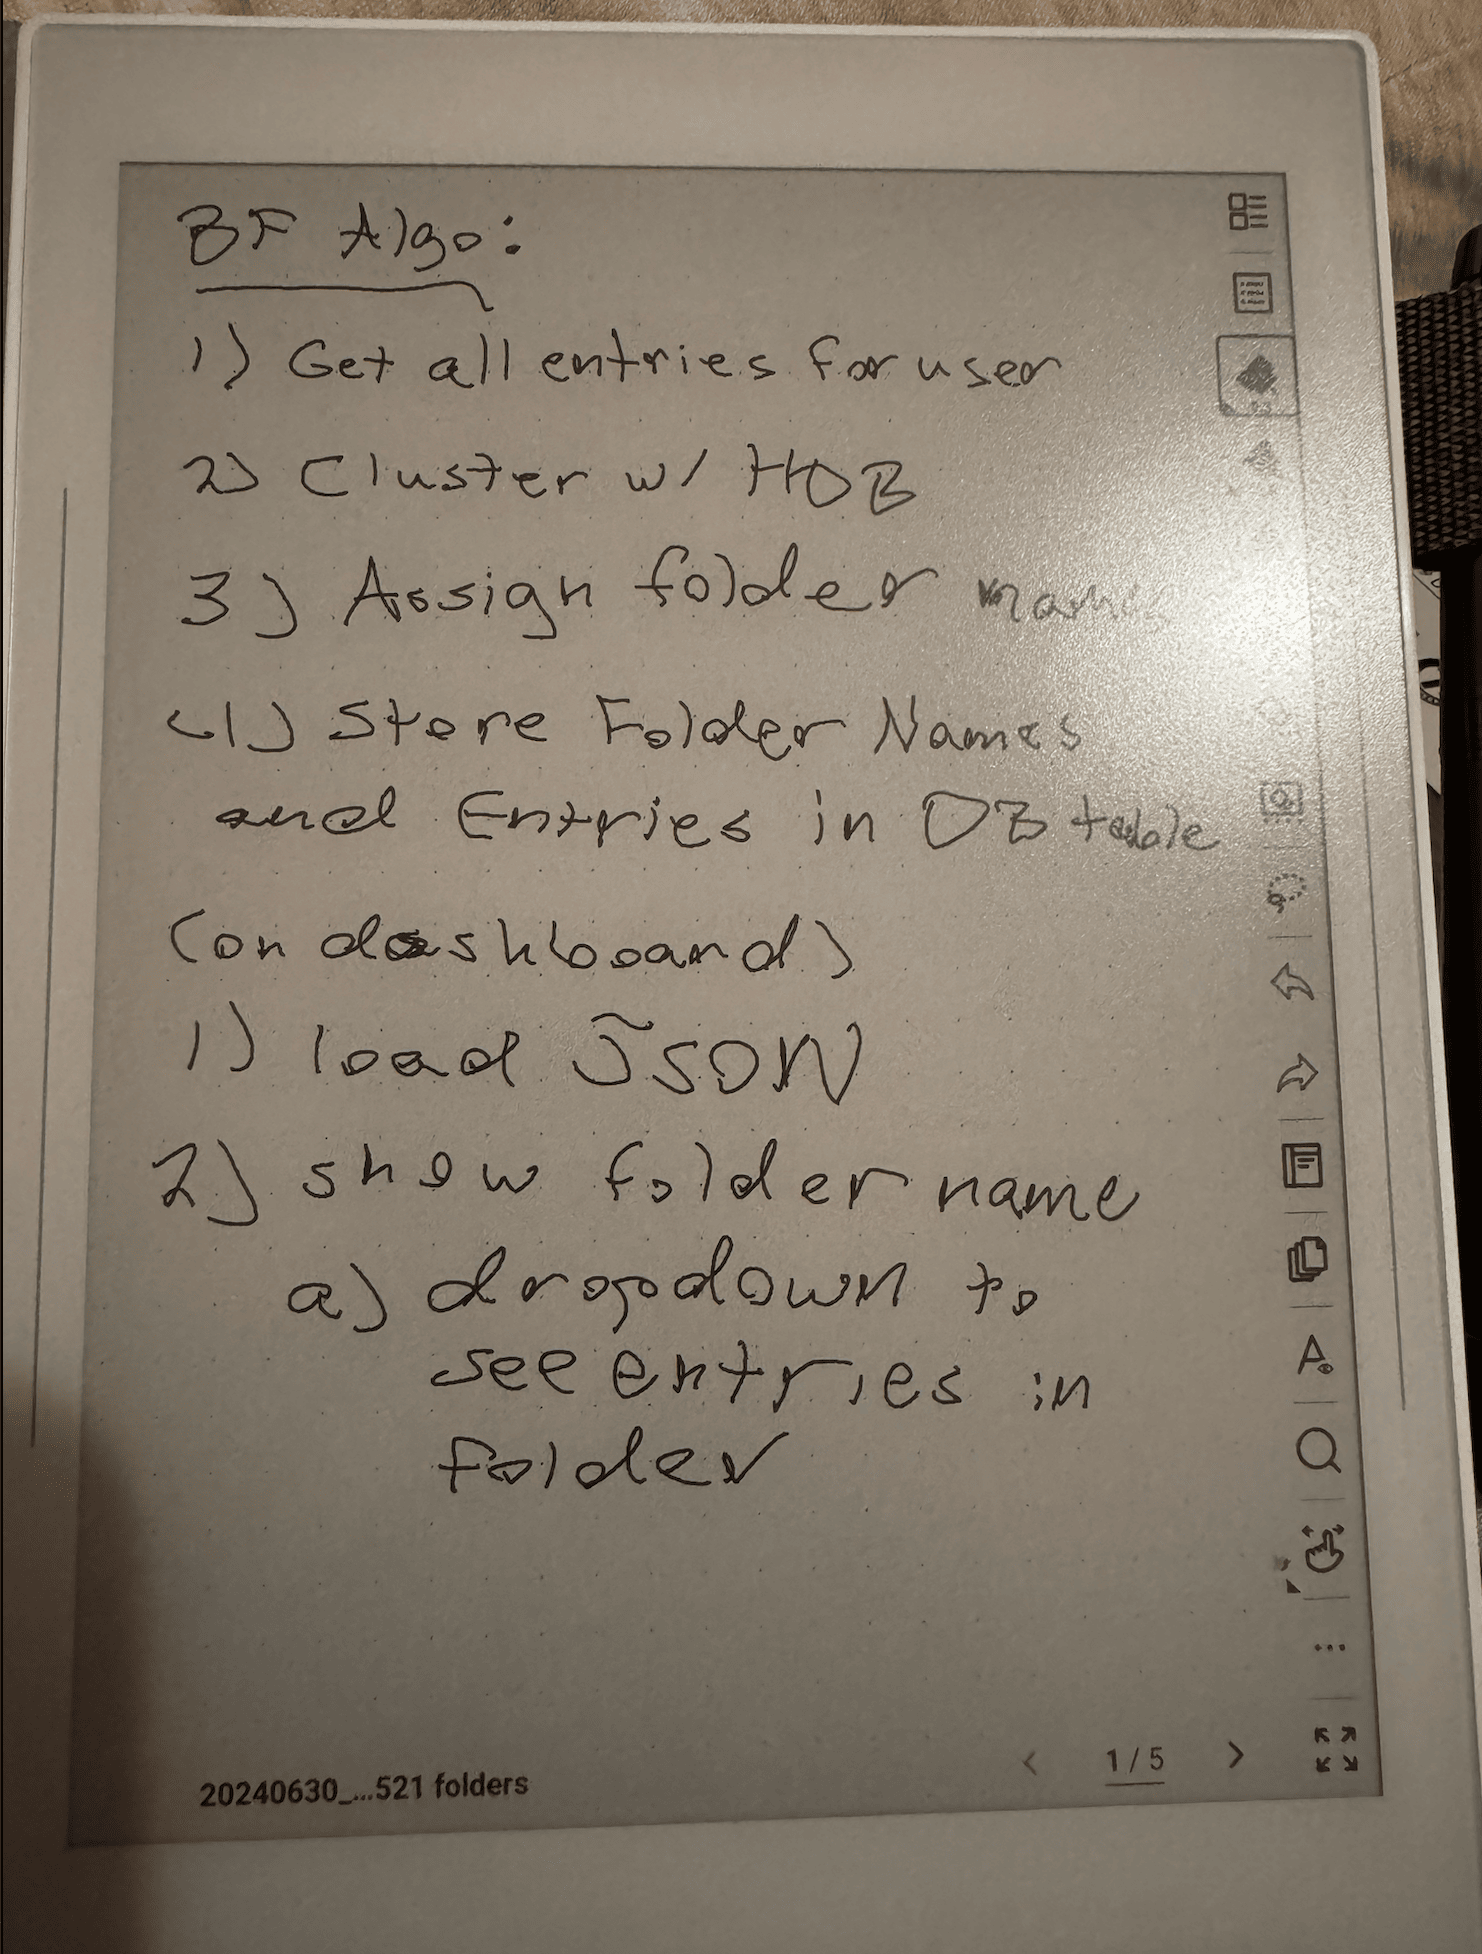 BF Algo:
1) Get all entries for user
2) Cluster w/ HDB
3) Assign folder names
4) Store Folder Names
and Entries in DB table
(on dashboard)
1) load JSON
2) show folder name
a) dropdown to
see entries in
folder
20240630_...521 folders
1 / 5